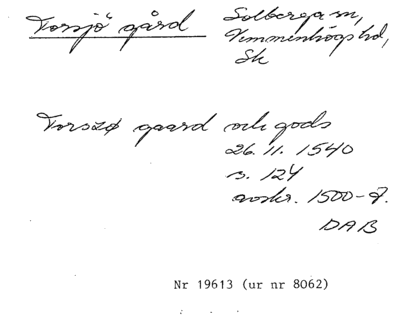 Torsjö gård Solberga sn,
Vemmenhögs hd,
Sk
Torszø gaard och gods
26.11.1540
s. 124
avskr. 1500-t.
DAB
Nr 19613 (ur nr 8062)